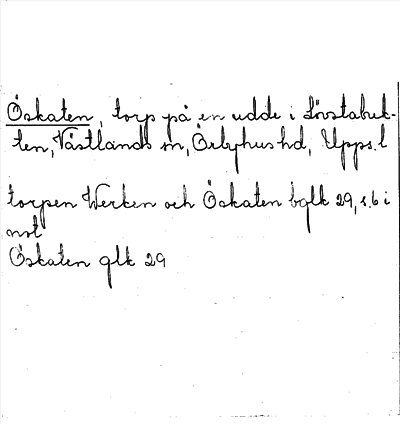 Öskaten, torp på en udde i Lövstabuk-
ten, Västlands sn, Örbyhus hd, Upps. l
torpen Werken och Öskaten bglk 29, s. 6 i
not
Öskaten glk 29